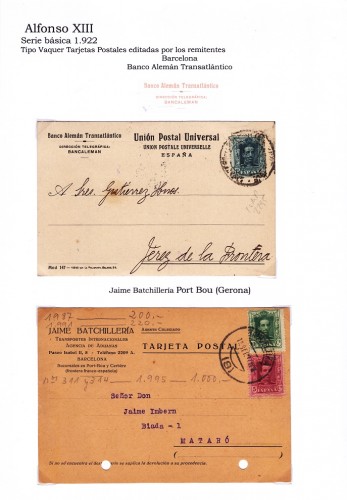 Alfonso XIII
Serie básica 1.922
Tipo Vaquer Tarjetas Postales editadas por los remitentes
Barcelona
Banco Alemán Transatlántico
Banco Alemán Transatlántico
DIRECCIÓN TELEGRÁFICA:
BANCALEMAN
Banco Alemán Transatlántico
DIRECCIÓN TELEGRÁFICA:
BANCALEMAN
Unión Postal Universal
UNION POSTALE UNIVERSELLE
ESPAÑA
A Sres. Gutierrez Hnos.
Jerez de la Frontera
Jaime Batchillería Port Bou (Gerona)
1987 200.-
1991 220.-
JAIME BATCHILLERÍA
TRANSPORTES INTERNACIONALES
AGENCIA DE ADUANAS
Paseo Isabel II, 8 - Teléfono 2389 A.
BARCELONA
TARJETA POSTAL
1.998 - 1.000.-
Señor Don
Jaime Imbern
Biada - 1
MATARÓ
Si no se encontrare el destinatario se suplica la devolución a su procedencia.